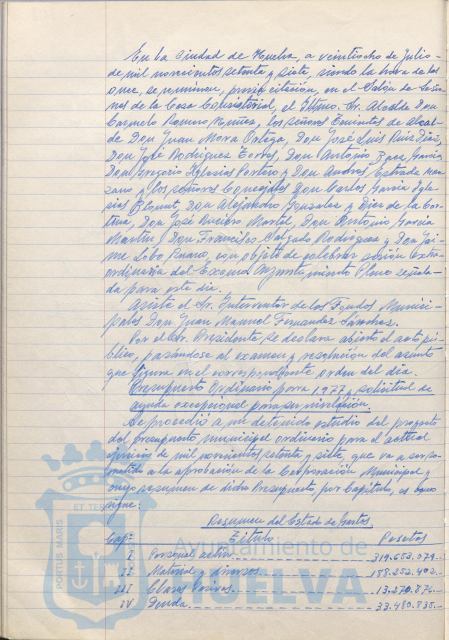 En la Ciudad de Huelva, a veintiocho de Julio
de mil novecientos setenta y siete, siendo la hora de las
once, se reunieron, previa citación, en el Salón de Sesio-
nes de la Casa Consistorial, el Iltmo. Sr. Alcalde Don
Carmelo Romero Núñez, los señores Tenientes de Alcal-
de Don Juan Mora Ortega, Don José Luis Ruiz Díaz,
Don José Rodríguez Torres, Don Antonio Baez García
Don Gregorio Iglesias Portero y Don Andrés Estrada Man-
zano y los señores Concejales Don Carlos García Igle-
sias, Don Alejandro González y Díez de la Cor-
tina, Don José Montal, Don Antonio García
Martín, Don Francisco Salgado Rodríguez y Don Jai-
me Lobo, con objeto de celebrar sesión Extra-
ordinaria del Excmo. Ayuntamiento Pleno señala-
da para este día.
Asiste el Sr. Interventor de los Fondos Munici-
pales Don Juan Manuel Fernández Sánchez.
Por el Sr. Presidente se declara abierto el acto pú-
blico, pasándose al examen y resolución del asunto
que figura en el correspondiente orden del día.
Presupuesto Ordinario para 1977 y solicitud de
ayuda excepcional para su nivelación.
Se procedió a un detenido estudio del proyecto
del presupuesto municipal ordinario para el actual
ejercicio de mil novecientos setenta y siete, que va a ser so-
metido a la aprobación de la Corporación Municipal y
cuyo resumen de dicho Presupuesto por Capítulo, es como
sigue:
Resumen del Estado de Gastos
Cap: Título Pesetas
I Personal activo 319.653.079.-
II Material y diversos 188.252.402.-
III Clases Pasivas 13.270.876.-
IV Deuda 33.480.835.-
PORTUS MARIS
ET TER
Ayuntamiento de
HUELVA